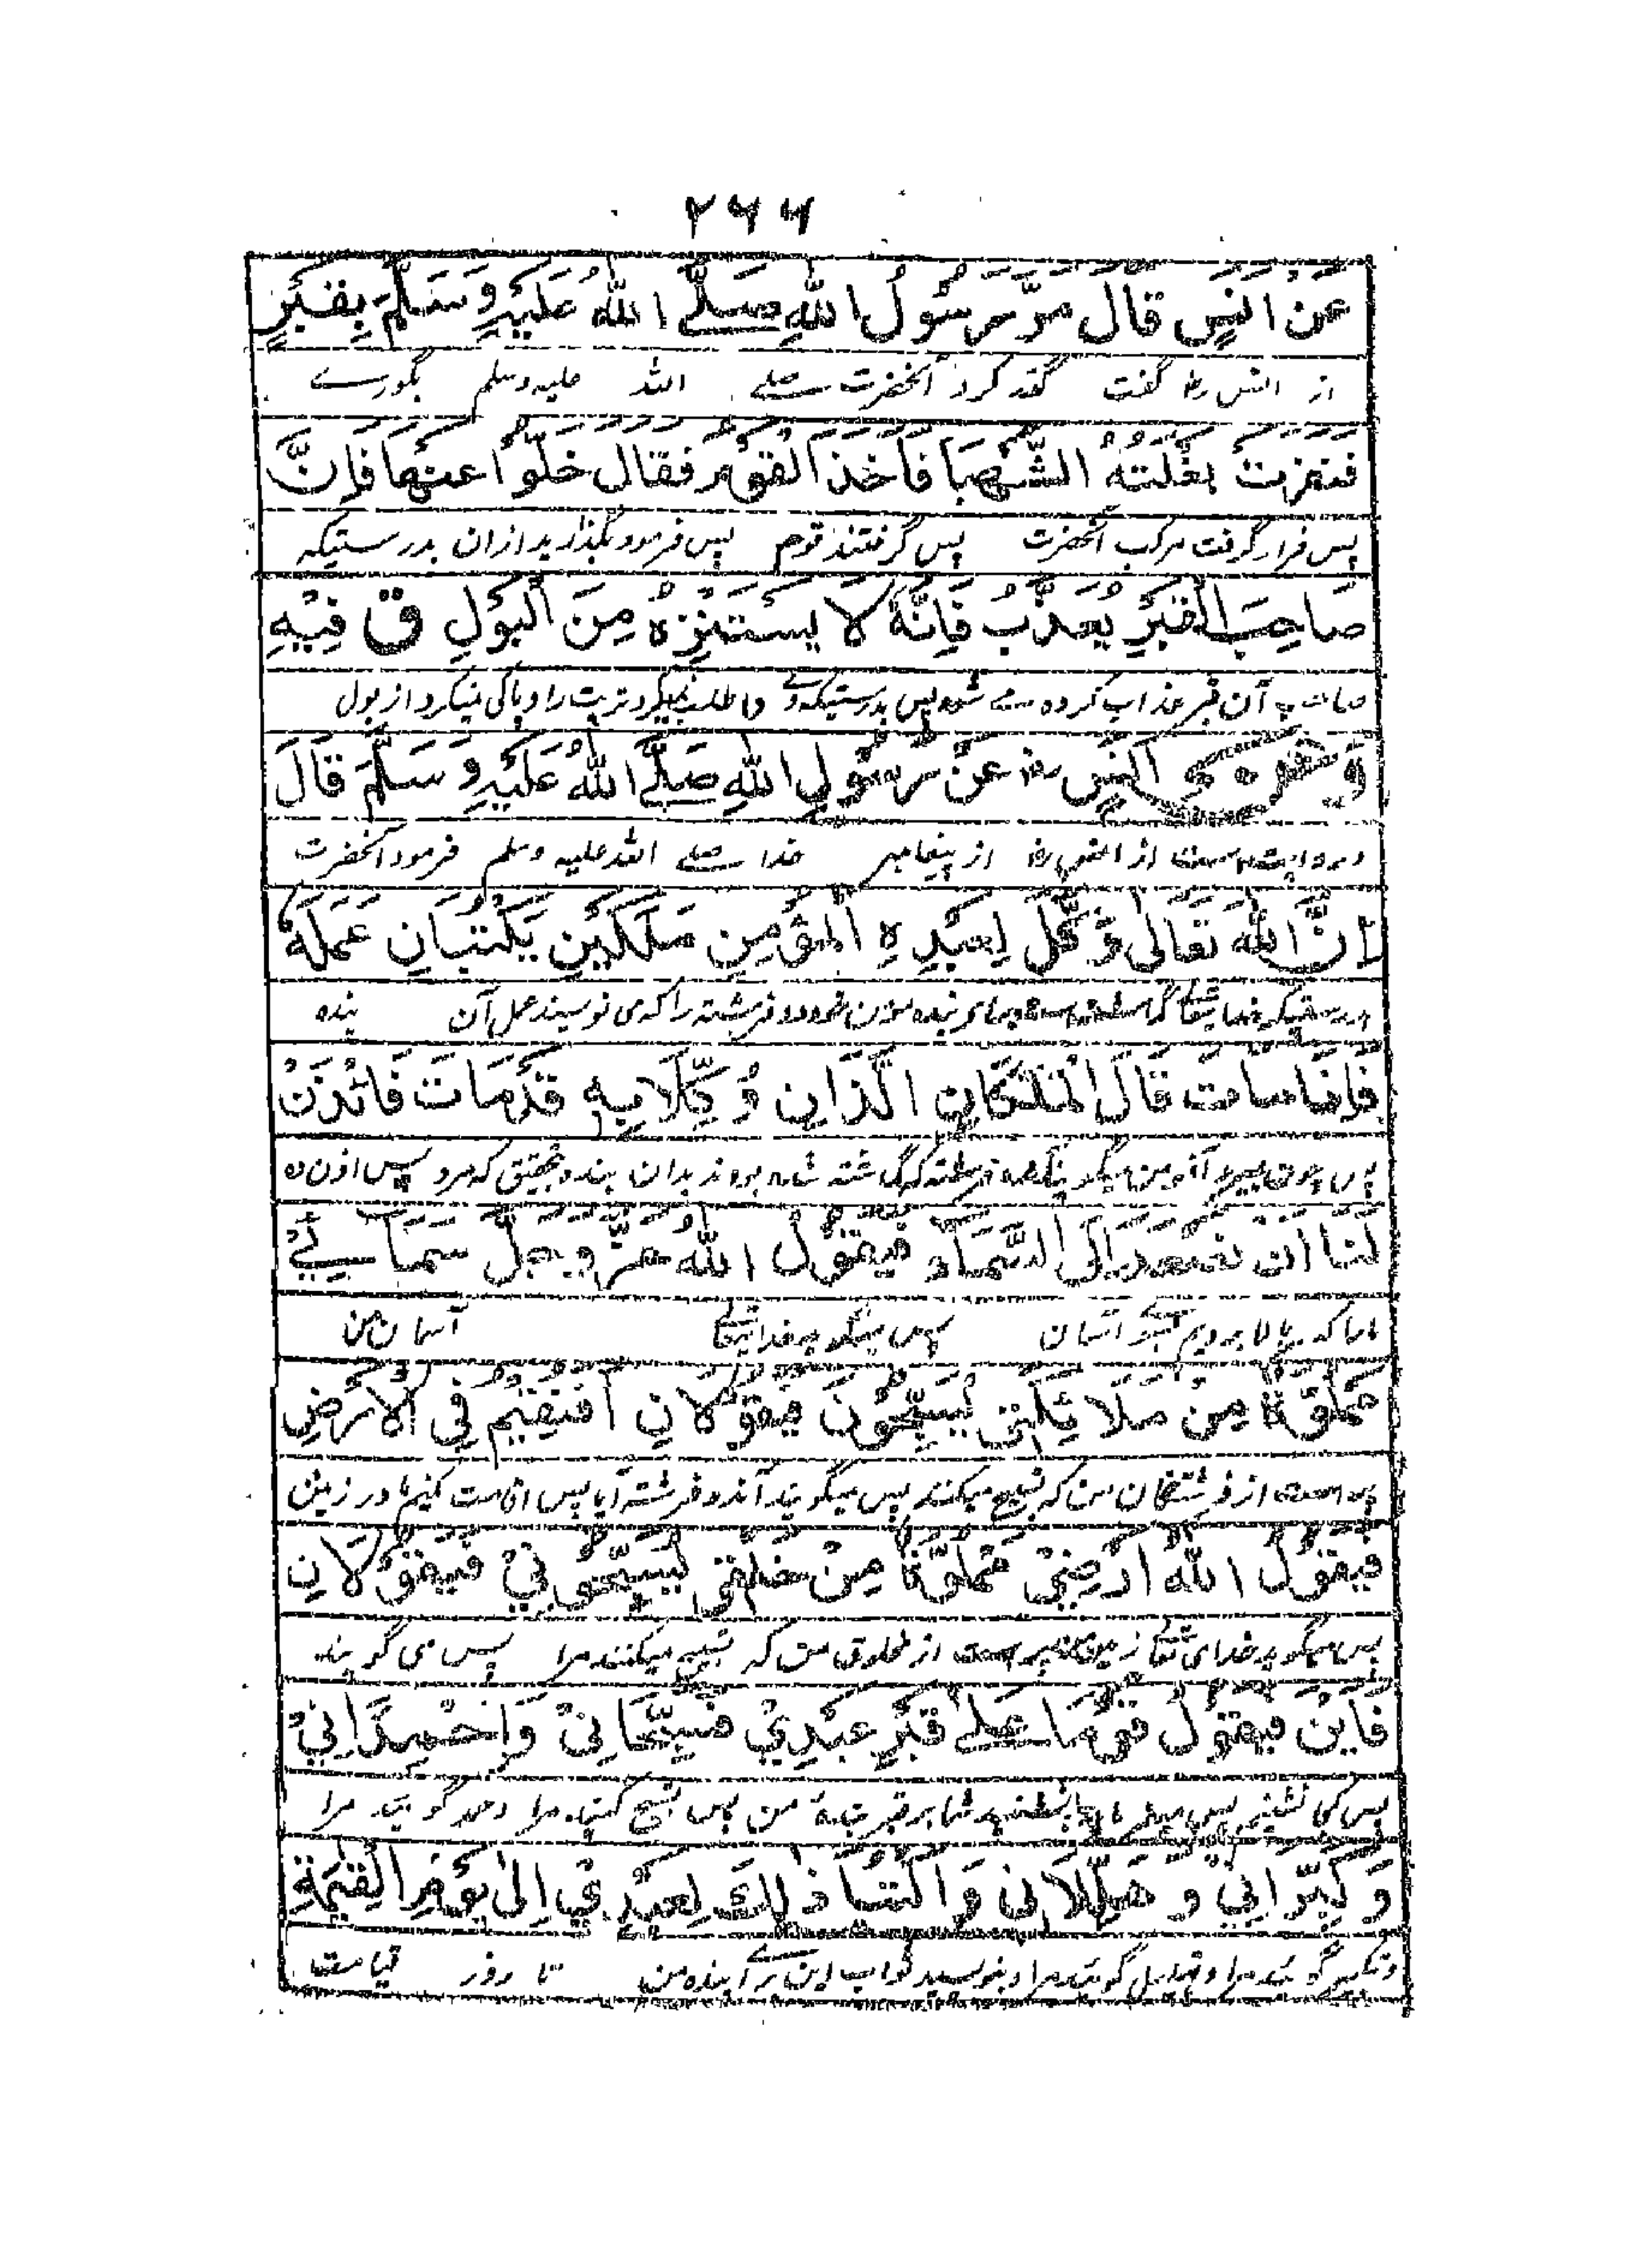 ۲۶۶
عَنْ اَنَسٍ قَالَ مَرَّ رَسُوْلُ اللهِ صَلَّے اللهُ عَلَيْهِ وَسَلَّمَ بِقَبْرٍ
از انس رض گفت گذر کرد آنحضرت صلے الله علیه وسلم بگورے
فنفرت بَغْلَتُهُ الشَّهْبَا فَاَخَذَ الْقَوْمُ فَقَالَ خَلُّوْا عَنْهَا فَاِنَّ
پس فرار گرفت مرکب آنحضرت پس گرفتند قوم پس فرمود بگذارید ازان بدرستیکه
صَاحِبَ الْقَبْرِ يُعَذَّبُ فَاِنَّهٗ لَا يَسْتَنْزِهُ مِنَ الْبَوْلِ ق فِيْهِ
صاحب آن قبر عذاب کرده مے شود پس بدرستیکه وے از بول
اَنَسٍ رض عَنْ رَسُوْلِ اللهِ صَلَّے اللهُ عَلَيْهِ وَسَلَّمَ قَالَ
و روایت است از انس رض از پیغامبر خدا صلے الله علیه وسلم فرمود آنحضرت
اِنَّ اللهَ تَعَالٰى وَكَّلَ لِعَبْدِهِ الْمُؤْمِنِ مَلَكَيْنِ يَكْتُبَانِ عَمَلَهٗ
بنده مومن خود دو فرشته را که می نویسند عمل آن بنده
فَاِذَا مَاتَ قَالَ الْمَلَكَانِ الَّذَانِ وُكِّلَا بِهٖ قَدْ مَاتَ فَائْذَنْ
پس چون بمیرد بدان بنده بتحقیق که مرد پس اذن ده
لَنَا اَنْ نَصْعَدَ اِلَى السَّمَآءِ فَيَقُوْلُ اللهُ عَزَّ وَجَلَّ سَمَآئِيْ
مارا که بالا برویم آسمان پس میگوید خدا تعالی آسمان من
مَمْلُوَّةٌ مِنْ مَلَائِكَتِيْ يُسَبِّحُوْنَ فَيَقُوْلَانِ اَفَنُقِيْمُ فِي الْاَرْضِ
پر است از فرشتگان من که تسبیح میکنند پس میگویند آندو فرشته آیا پس اقامت کنیم ما در زمین
فَيَقُوْلُ اللهُ اَرْضِيْ مَمْلُوَّةٌ مِنْ خَلْقِيْ يُسَبِّحُوْنِيْ فَيَقُوْلَانِ
پس میگوید خدای تعالی زمین من پر است از مخلوق من که تسبیح میکنند مرا پس می گویند
فَاَيْنَ فَيَقُوْلُ قُوْمَا عَلٰے قَبْرِ عَبْدِيْ فَسَبِّحَانِيْ وَاحْمَدَانِيْ
بر قبر بنده من پس تسبیح کنید مرا وحمد گویید مرا
وَكَبِّرَانِيْ وَهَلِّلَانِيْ وَاكْتُبَا ذٰلِكَ لِعَبْدِيْ اِلٰى يَوْمِ الْقِيٰمَةِ
وتکبیر گویید مرا وتهلیل گویید مرا وبنویسید ثواب این بنده من تا روز قیامت